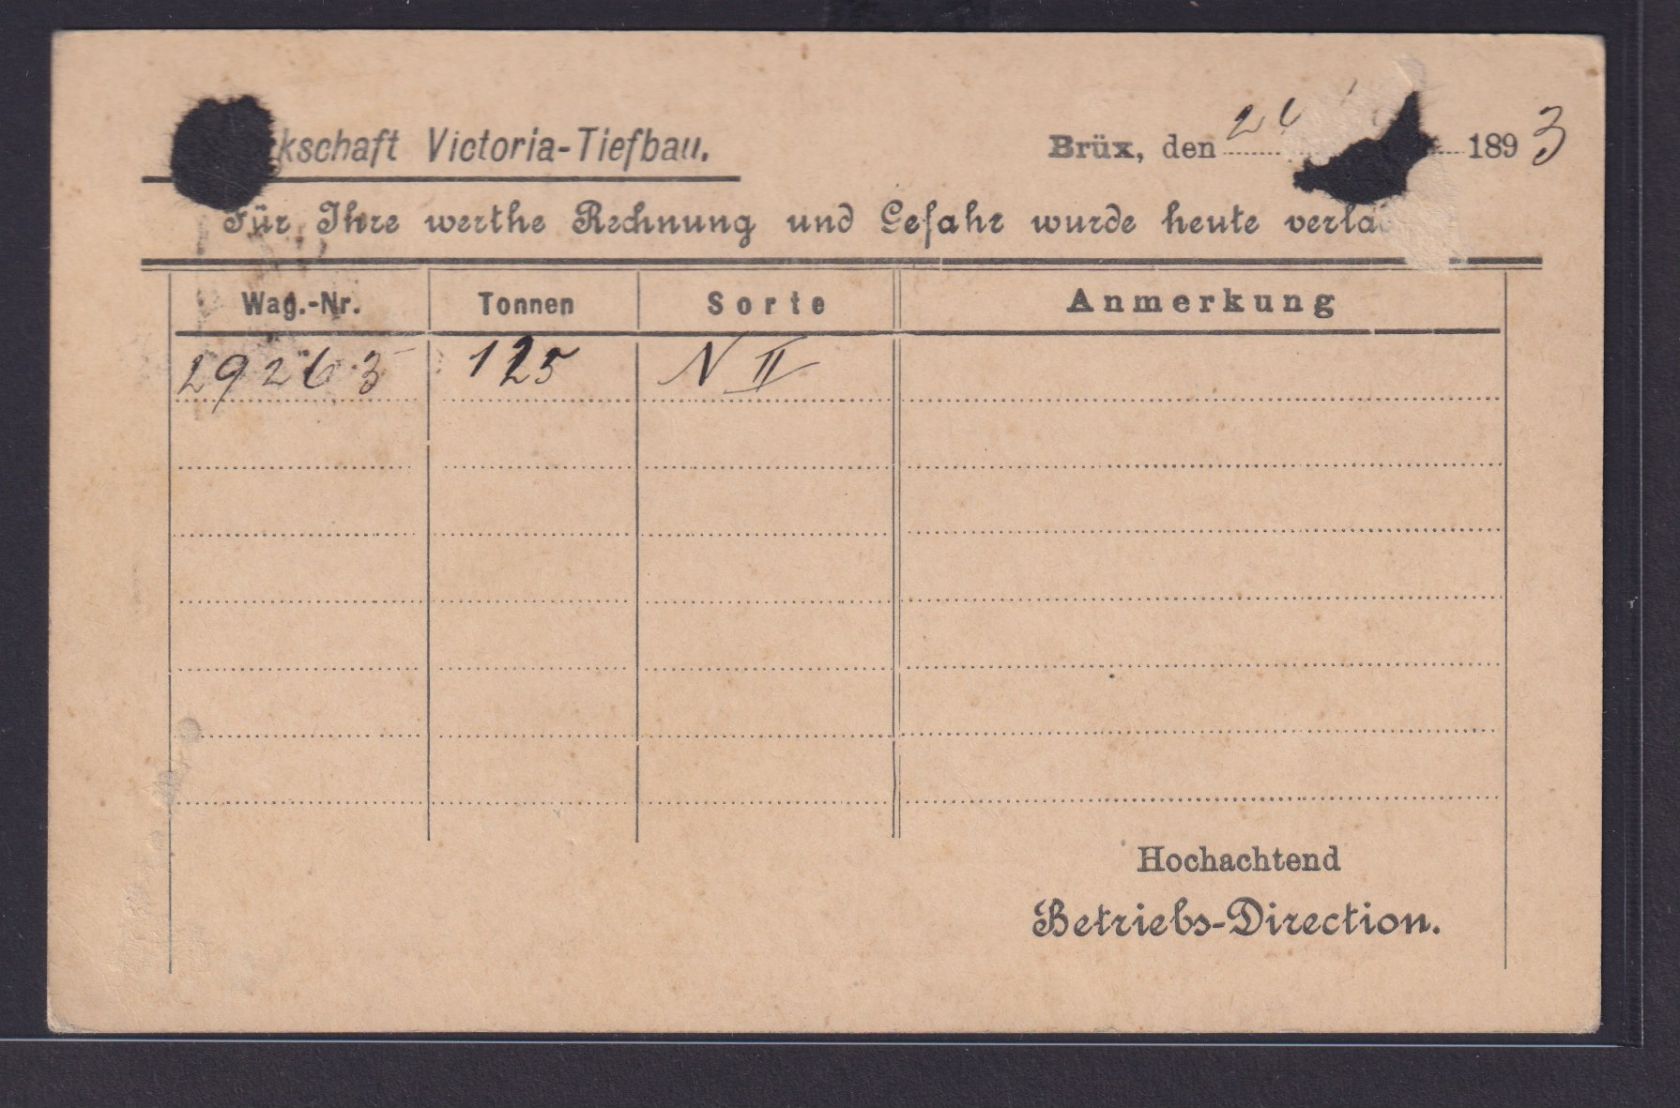 kschaft Victoria-Tiefbau.
Brüx, den 1893
Für Ihre werthe Rechnung und Gefahr wurde heute verla
Wag.-Nr. Tonnen Sorte Anmerkung
29263 125 N II
Hochachtend
Betriebs-Direction.